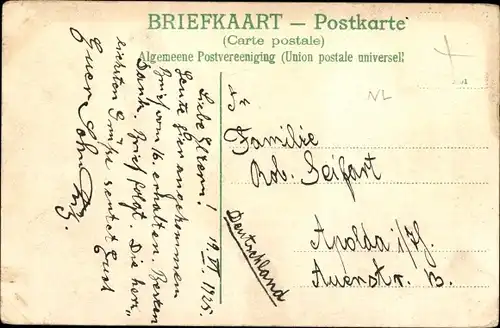 BRIEFKAART – Postkarte
(Carte postale)
Algemeene Postvereeniging (Union postale universel
NL
Familie
Rob. Seifart
Apolda i/Th.
Auenstr. 13.
Deutschland
19. VI. 1925.
Liebe Eltern!
Heute hier angekommen
Brief vom 16. erhalten. Besten
Dank. Brief folgt. Die herz-
lichsten Grüße sendet Euch
Euer Sohn